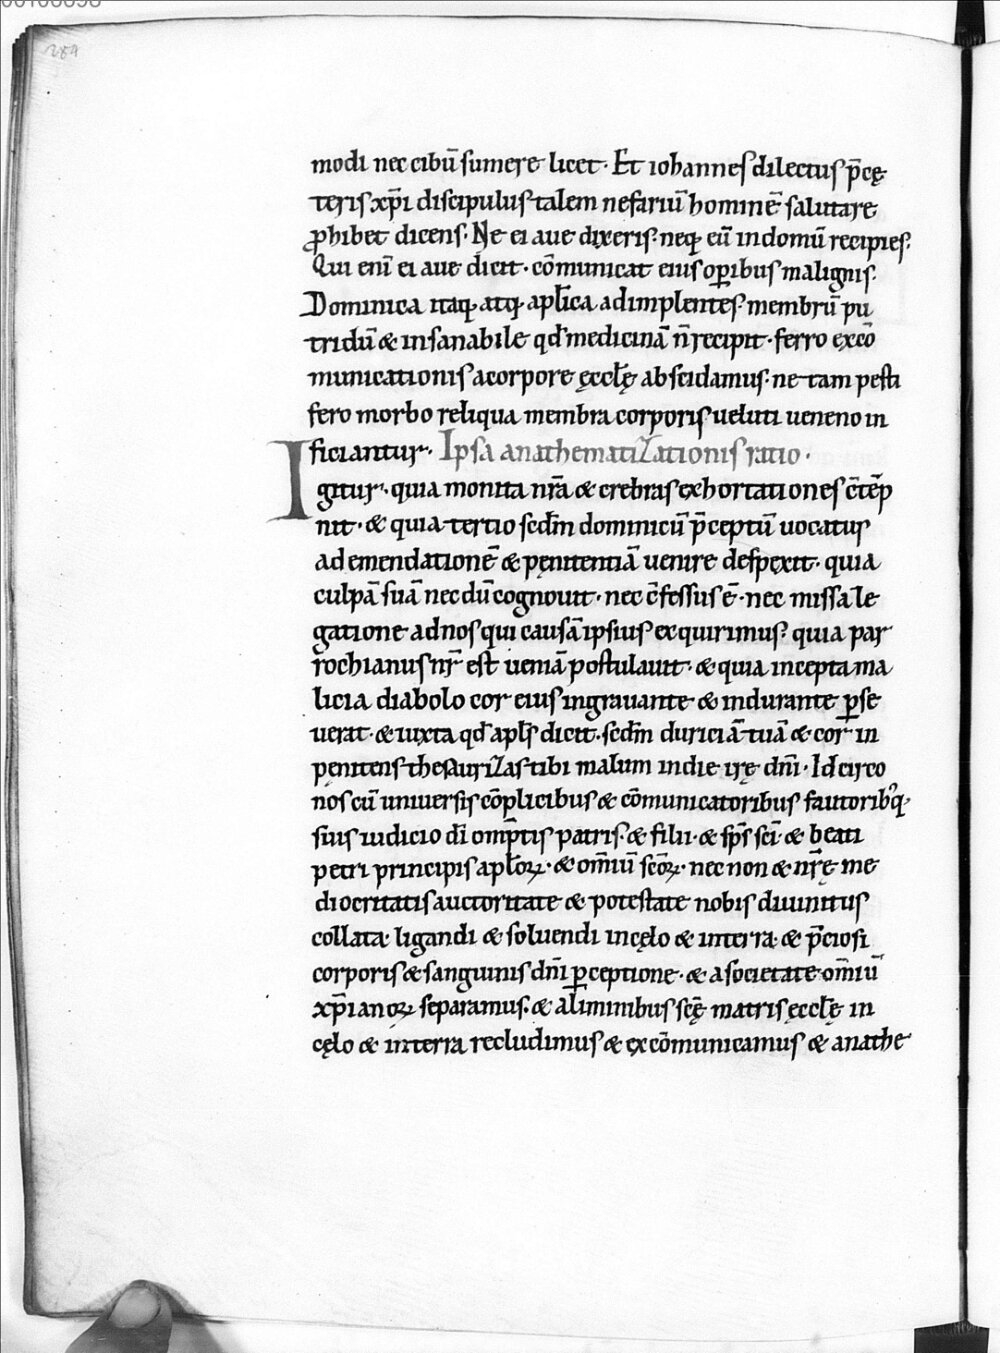 289
modi nec cibū sumere licet. Et iohannes dilectus p̄cę
teris xp̄i discipulus talem nefariū hominē salutare
ꝓhibet dicens. Ne ei aue dixeris. neq; eū in domū recipies.
Qui eni ei aue dicit. cōmunicat eius oꝑibus malignis.
Dominica itaq; atq; apl̄ica adimplentes. membrū pu
tridū & insanabile qd̄ medicinā n̄ recipit. ferro excō
municationis a corpore ęccl̄ę abscidamus. ne tam pesti
fero morbo reliqua membra corporis ueluti ueneno in
ficiantur. Ipsa anathematizationis ratio.
Igitur. quia monita nr̄a & crebras exhortationes c̄tēp
nit. & quia tertio scdm̄ dominicū p̄ceptū uocatus
ad emendationē & pęnitentiā uenire despęxit. quia
culpā suā necdū cognouit. nec c̄fessus ē. nec missa le
gatione ad nos qui causā ipsius exquirimus. quia par
rochianus nr̄ est ueniā postulauit. & quia incepta ma
licia diabolo cor eius ingrauante & indurante ꝑse
uerat. & iuxta qd̄ apl̄s dicit. scdm̄ duriciā tuā & cor in
pęnitens thesaurizas tibi malum in die irę dn̄i. Idcirco
nos cū uniuersis cōplicibus & cōmunicatoribus fautorib; q;
suis iudicio dī omp̄tis patris. & filii. & sp̄s sc̄i. & beati
petri principis apl̄oꝝ. & om̄iū sc̄oꝝ. nec non & nr̄ę me
diocritatis auctoritate & potestate nobis diuinitus
collata ligandi & soluendi in cęlo & in terra. & p̄ciosi
corporis & sanguinis dn̄i ꝑceptione. & a societate om̄iū
xp̄ianoꝝ separamus. & a liminibus sc̄ę matris ęccl̄ę in
cęlo & in terra recludimus & excōmunicamus & anathe